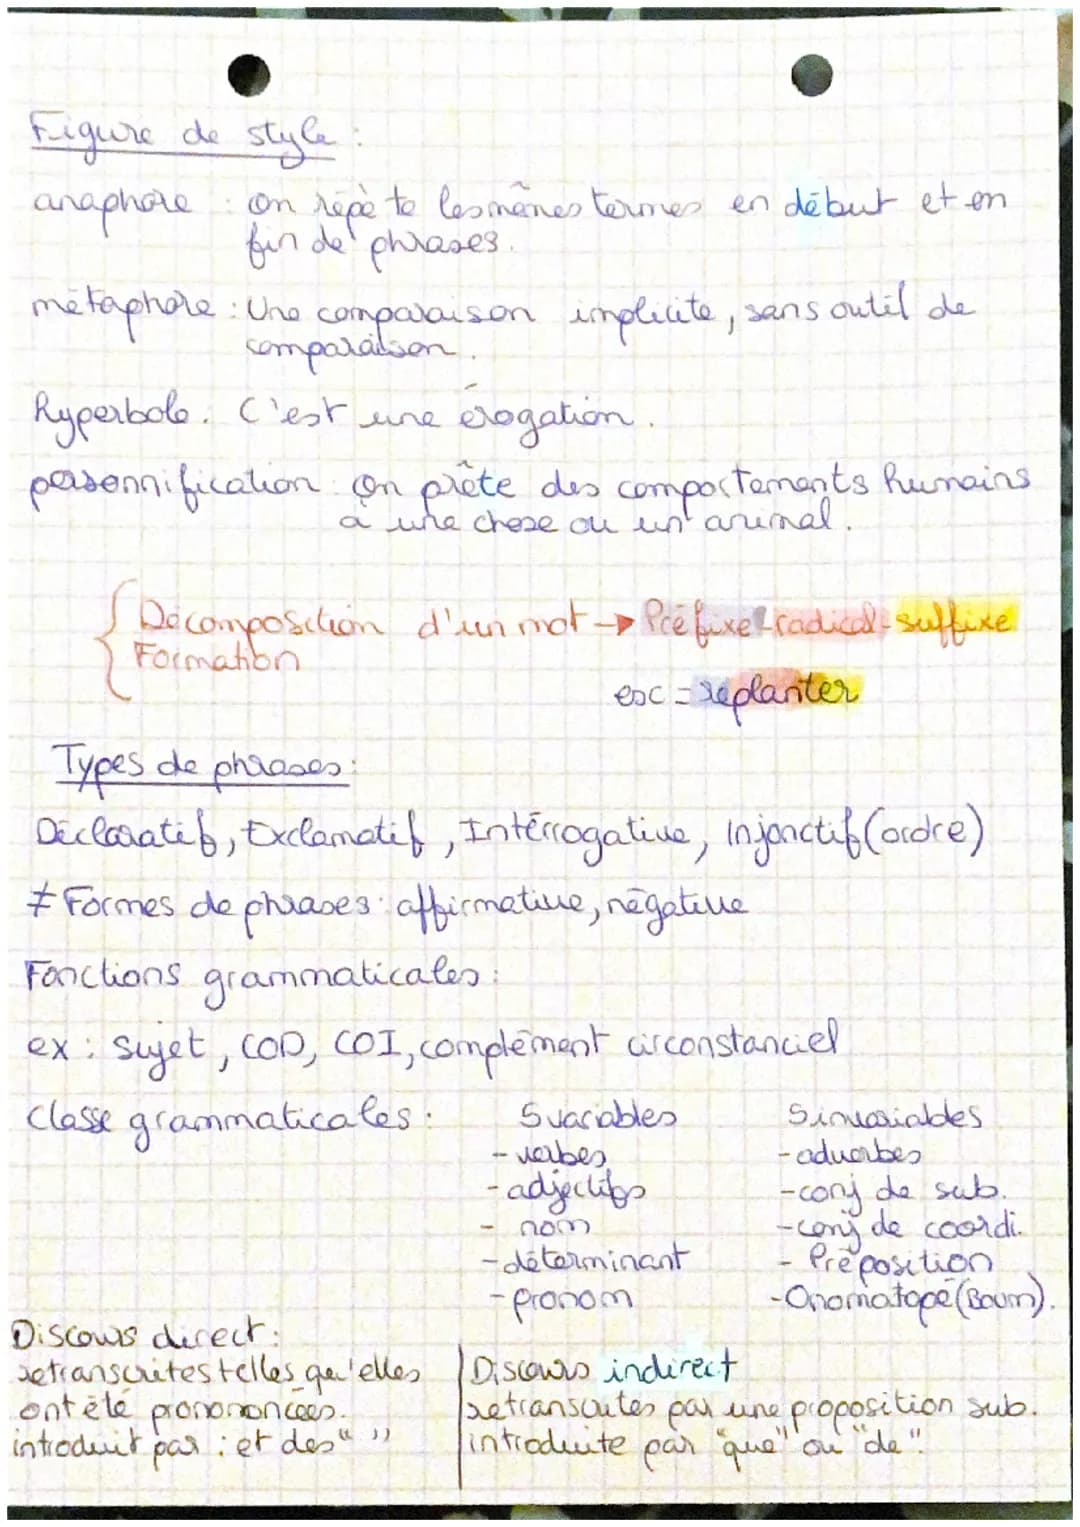 Figure de style :
anaphore : On répète les mêmes termes en début et en
fin de phrases.
métaphore : Une comparaison implicite, sans outil de
comparaison.
Hyperbole : C'est une érogation.
personnification : On prête des comportements humains
à une chose ou un animal.
Décomposition d'un mot → Préfixe - radical - suffixe
Formation
ex = replanter
Types de phrases :
Déclaratif, Exclamatif, Intérrogative, Injonctif (ordre)
≠ Formes de phrases : affirmative, négative
Fonctions grammaticales :
ex : Sujet, COD, COI, complément circonstanciel
Classe grammaticales : 5 variables 5 invariables
- verbes - adverbes
- adjectifs - conj de sub.
- nom - conj de coordi.
- déterminant - Préposition
- pronom - Onomatopé (Boum).
Discours direct :
retranscrites telles qu'elles
ont été prononcées.
introduit par : et des " "
Discours indirect
retranscrites par une proposition sub.
introduite par "que" ou "de".